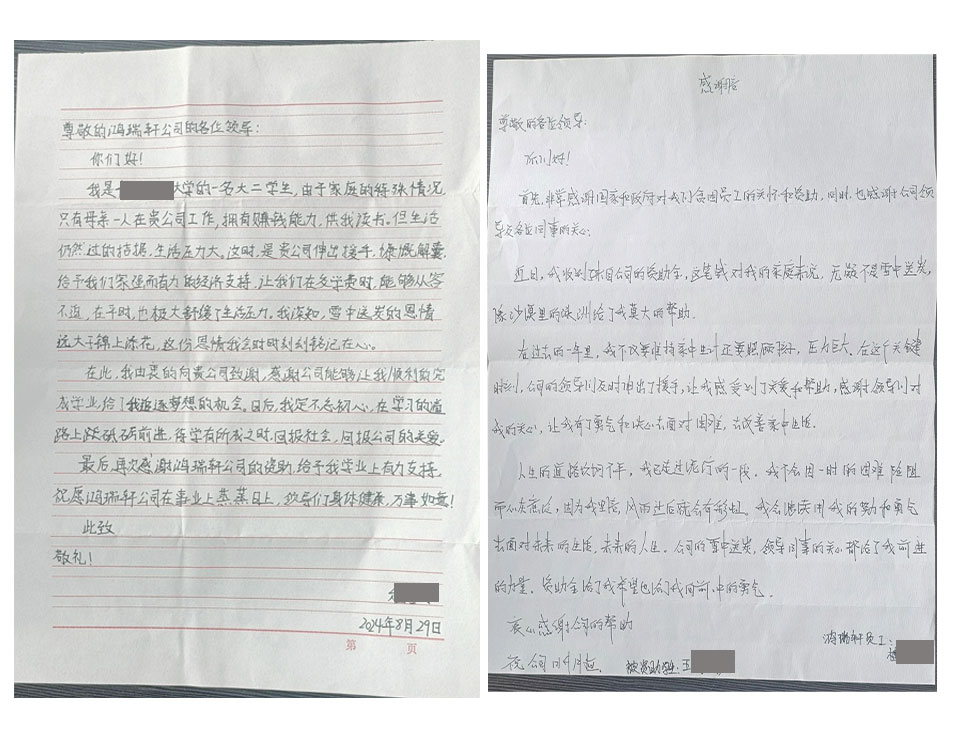 尊敬的鸿瑞轩公司的各位领导:
你们好!
我是 大学的一名大二学生,由于家庭的特殊情况
只有母亲一人在贵公司工作,拥有赚钱能力,供我读书。但生活
仍然过的拮据,生活压力大。这时,是贵公司伸出援手,慷慨解囊
给予我们家强而有力的经济支持,让我们在交学费时,能够从容
不迫,在平时,也极大舒缓了生活压力。我深知,雪中送炭的恩情
远大于锦上添花,这份恩情我会时时刻刻铭记在心。
在此,我由衷的向贵公司致谢,感谢公司能够让我顺利的完
成学业,给了我追逐梦想的机会。日后,我定不忘初心,在学习的道
路上砥砺前进,待学有所成之时,回报社会,回报公司的关爱。
最后,再次感谢鸿瑞轩公司的资助,给予我学业上有力支持。
祝愿鸿瑞轩公司在事业上蒸蒸日上,领导们身体健康,万事如意!
此致
敬礼!
2024年8月29日
第 页
感谢信
尊敬的各位领导:
你们好!
首先,非常感谢国家和政府对我们贫困员工的关怀和资助,同时,也感谢公司领
导及各位同事的关心。
近日,我收到来自公司的资助金,这笔钱对我的家庭来说,无疑不是雪中送炭,
像沙漠里的绿洲给了我莫大的帮助.
在过去的一年里,我不仅要维持家中生计还要照顾孩子,压力巨大。在这个关键
时刻,公司的领导们及时伸出了援手,让我感受到了关爱和帮助,感谢领导们对
我的关心,让我有了勇气和决心去面对困难,去改善家中生活。
人生的道路坎坷不平,我已走过泥泞的一段。我不会因一时的困难险阻
而心灰意冷,因为我坚信,风雨过后就会有彩虹。我会继续用我的努力和勇气
去面对未来的生活,未来的人生。公司的雪中送炭,领导同事的关心都给了我前进
的力量。资助金给了我希望也给了我向前冲的勇气。
衷心感谢公司的帮助
祝公司
鸿瑞轩员工:
被资助 : 王